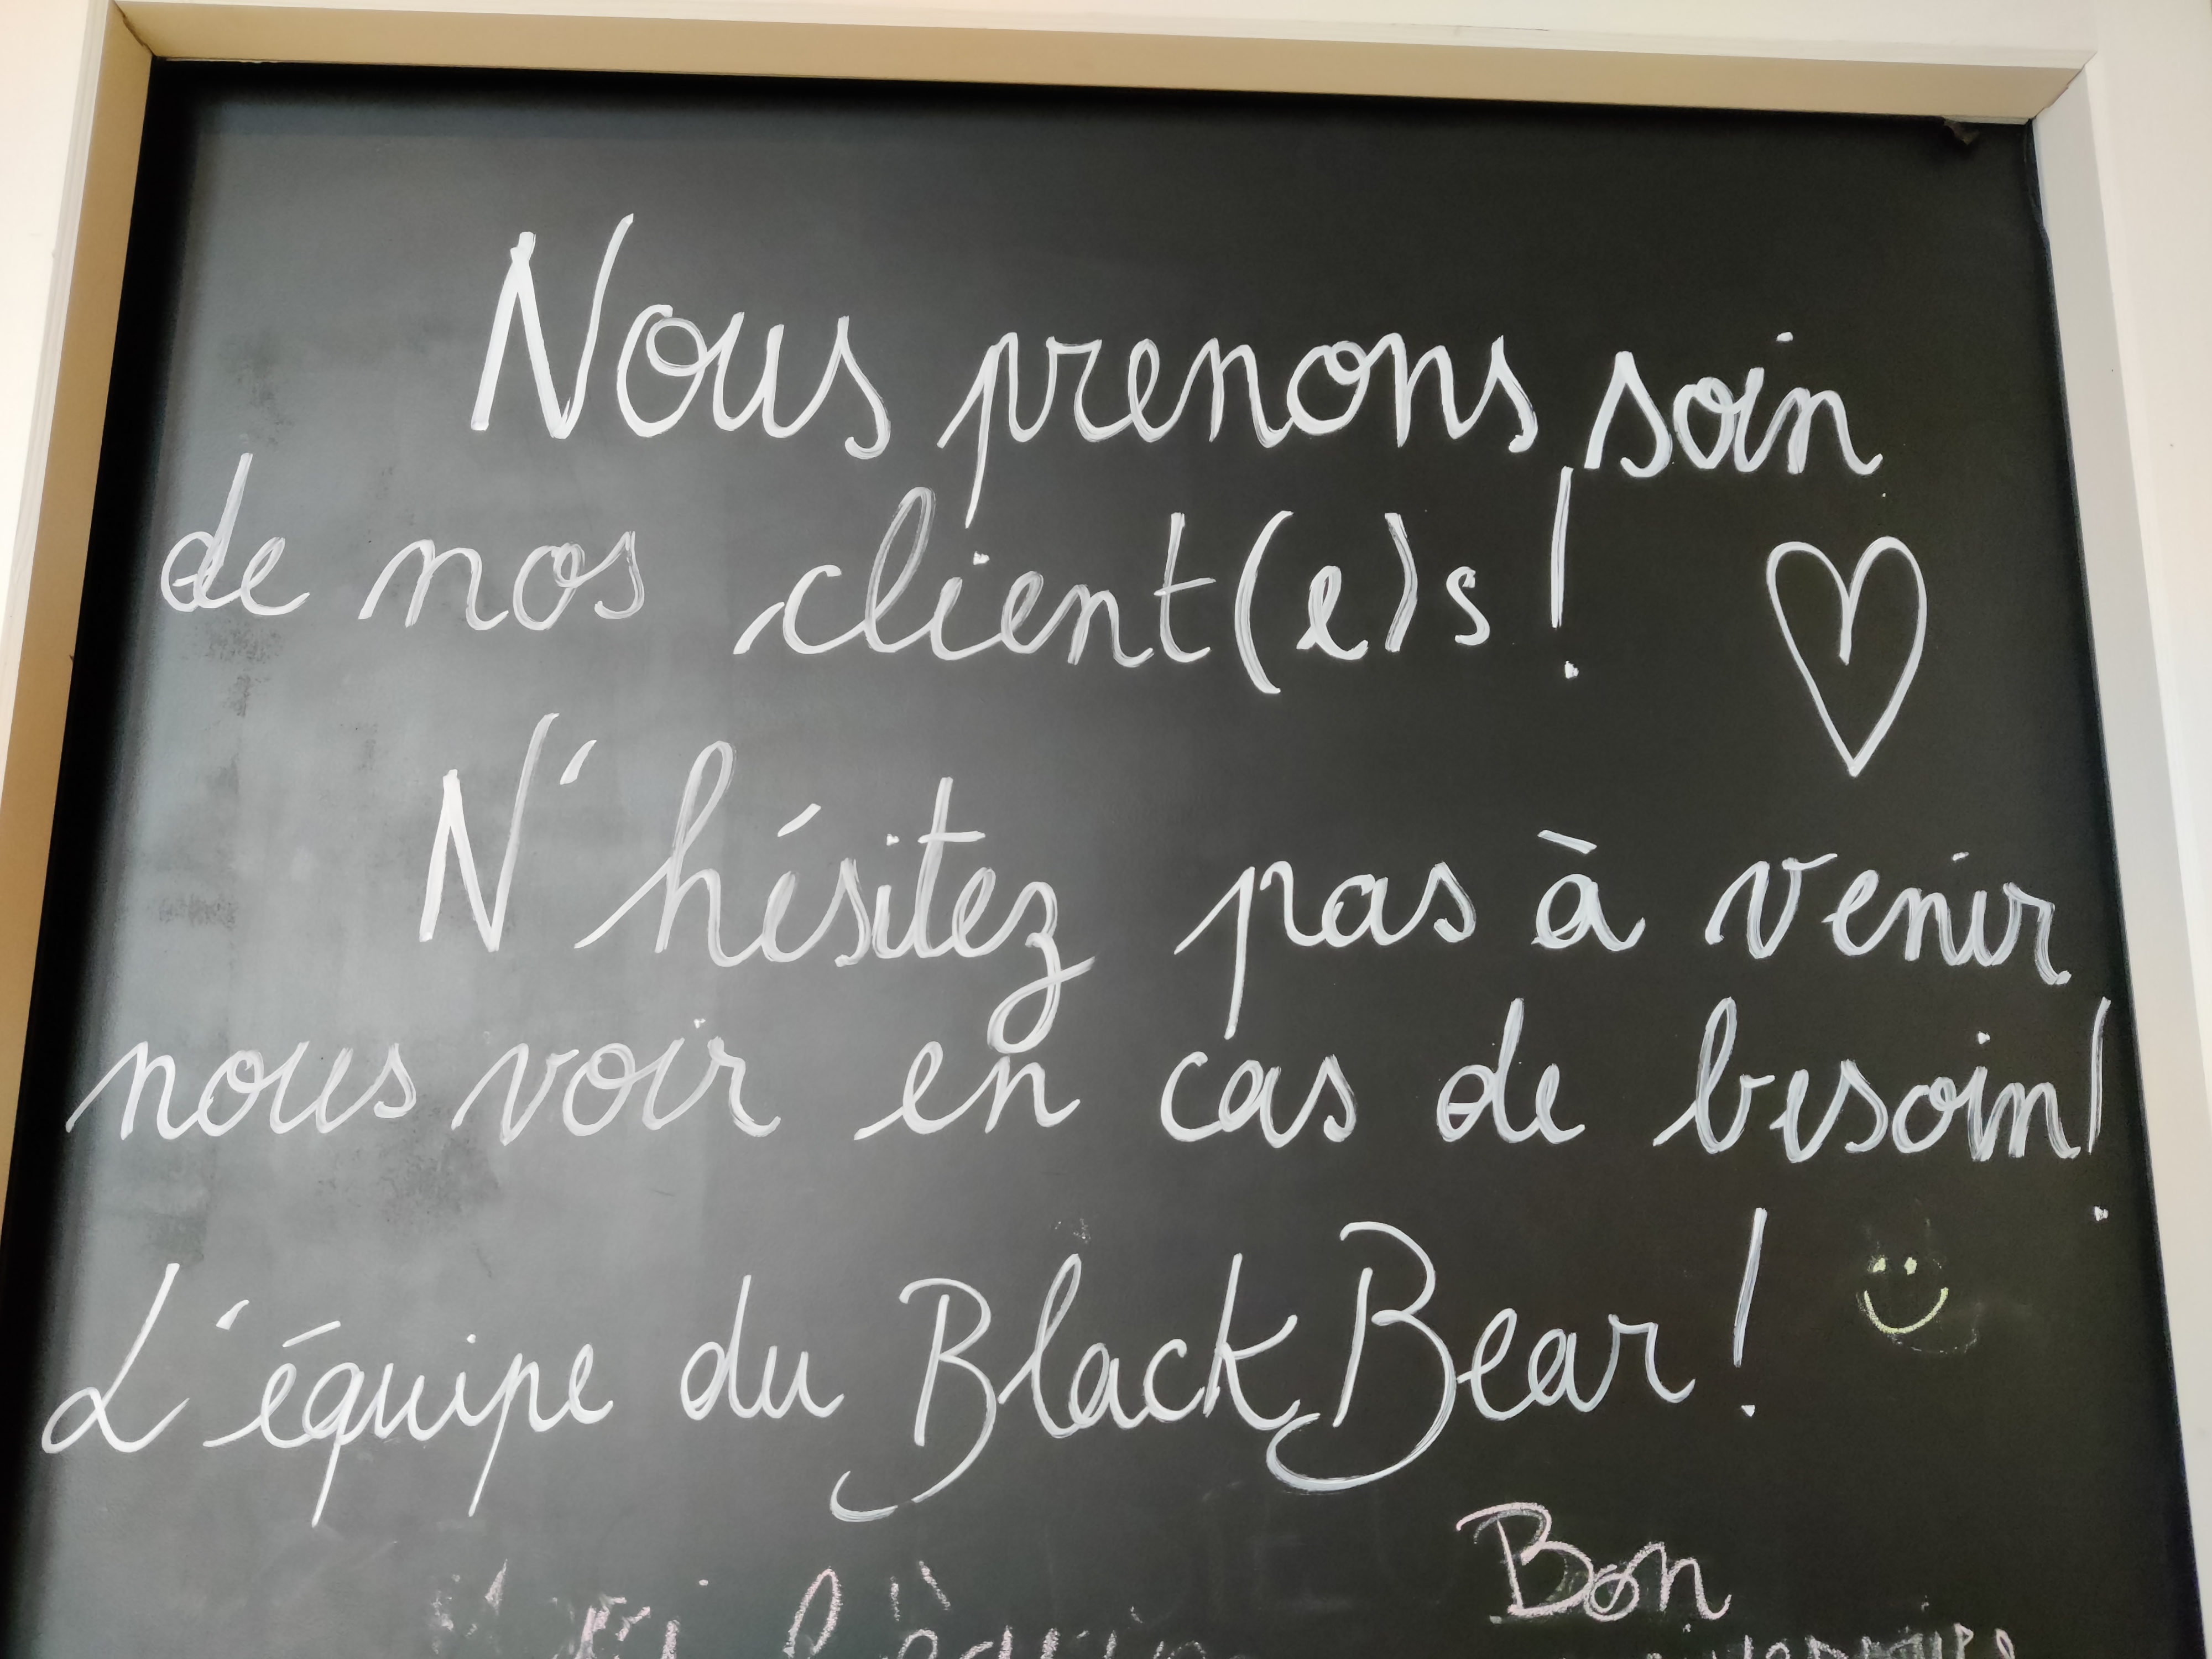 Nous prenons soin
de nos client(e)s !
N'hésitez pas à venir
nous voir en cas de besoin !
L'équipe du Black Bear !
Bon